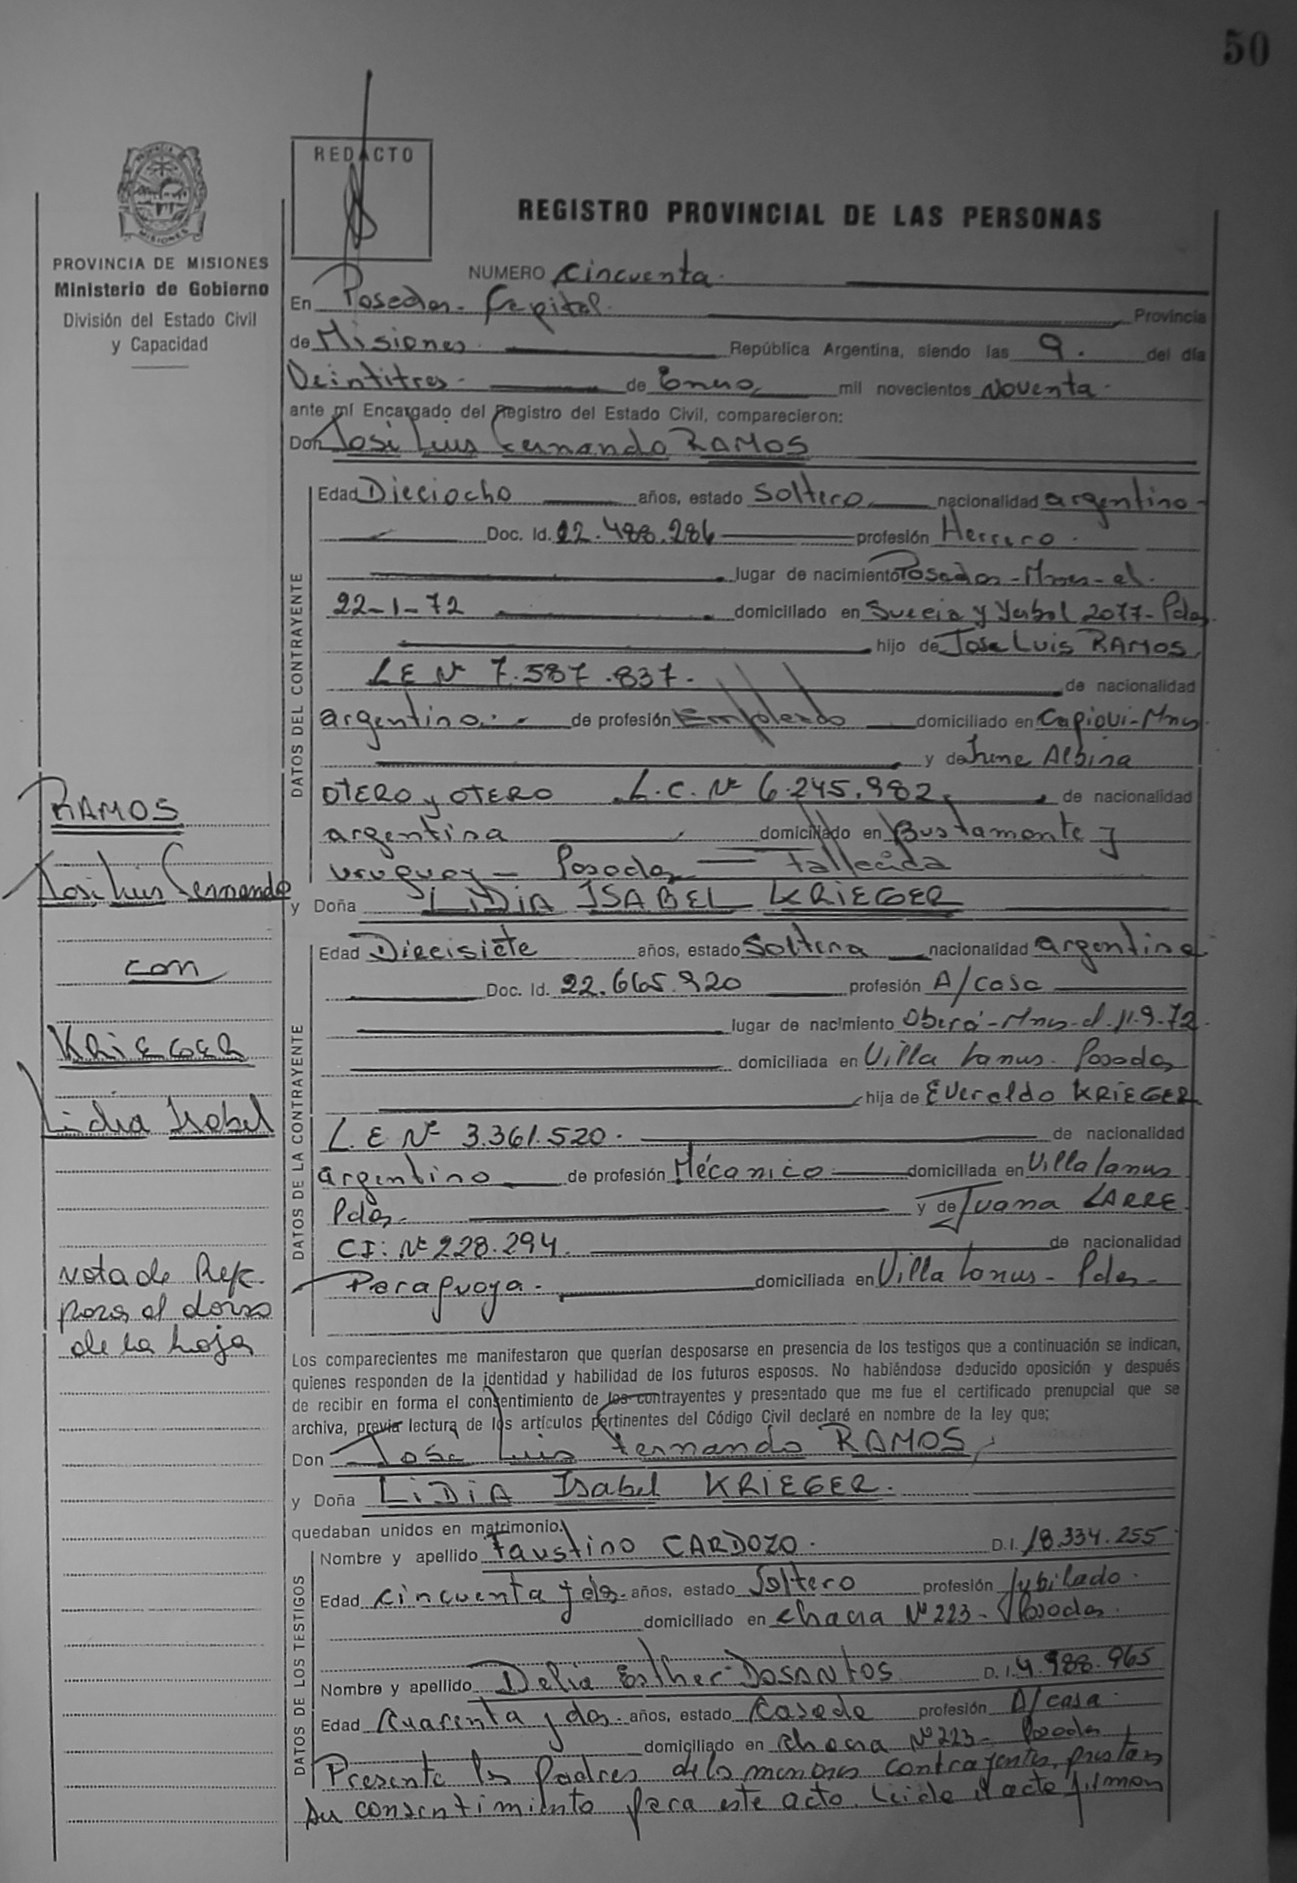 50
REDACTO
REGISTRO PROVINCIAL DE LAS PERSONAS
PROVINCIA DE MISIONES
Ministerio de Gobierno
División del Estado Civil
y Capacidad
NUMERO Cincuenta.
En Posadas - Capital. Provincia
de Misiones. República Argentina, siendo las 9. del día
Veintitres. de Enero mil novecientos Noventa.
ante mí Encargado del Registro del Estado Civil, comparecieron:
Don José Luis Fernando RAMOS
DATOS DEL CONTRAYENTE
Edad Dieciocho años, estado Soltero nacionalidad argentino
Doc. Id. 22.488.286 profesión Herrero.
lugar de nacimiento Posadas - Mnes - el.
22-1-72 domiciliado en Suecia y Yerbal 2077 - Pdas.
hijo de Jose Luis RAMOS
L E Nº 7.587.837. de nacionalidad
argentino. de profesión Empleado domiciliado en Capiovi - Mnes.
y de Irene Albina
OTERO y OTERO L.C. Nº 6.245.982 de nacionalidad
argentina domiciliado en Bustamante y
Uruguay - Posadas - Fallecida
y Doña LIDIA ISABEL KRIEGER
DATOS DE LA CONTRAYENTE
Edad Diecisiete años, estado Soltera nacionalidad argentina
Doc. Id. 22.665.920 profesión A/casa
lugar de nacimiento Oberá - Mnes - el. 11.9.72.
domiciliada en Villa Lanus. Posadas
hija de Everaldo KRIEGER
L. E Nº 3.361.520. de nacionalidad
argentino de profesión Mécanico domiciliada en Villa Lanus
Pdas. y de Juana LARRE
CI: Nº 228.294. de nacionalidad
Paraguaya. domiciliada en Villa Lanus - Pdas -
RAMOS
José Luis Fernando
con
KRIEGER
Lidia Isabel
Nota de Ref.
para al dorso
de la hoja
Los comparecientes me manifestaron que querían desposarse en presencia de los testigos que a continuación se indican,
quienes responden de la identidad y habilidad de los futuros esposos. No habiéndose deducido oposición y después
de recibir en forma el consentimiento de los contrayentes y presentado que me fue el certificado prenupcial que se
archiva, previa lectura de los artículos pertinentes del Código Civil declaré en nombre de la ley que:
Don José Luis Fernando RAMOS
y Doña LIDIA Isabel KRIEGER.
quedaban unidos en matrimonio.
DATOS DE LOS TESTIGOS
Nombre y apellido Faustino CARDOZO. D.I. 18.334.255
Edad Cincuenta y dos. años, estado Soltero profesión Jubilado.
domiciliado en chacra Nº 223 - Posadas.
Nombre y apellido Delia Esther DOSANTOS D.I. 4.988.965
Edad Cuarenta y dos. años, estado Casada profesión A/casa.
domiciliado en chacra Nº 223 - Posadas
Presente los Padres de los menores contrayentes, prestan
su consentimiento para este acto. Leída el acta firman